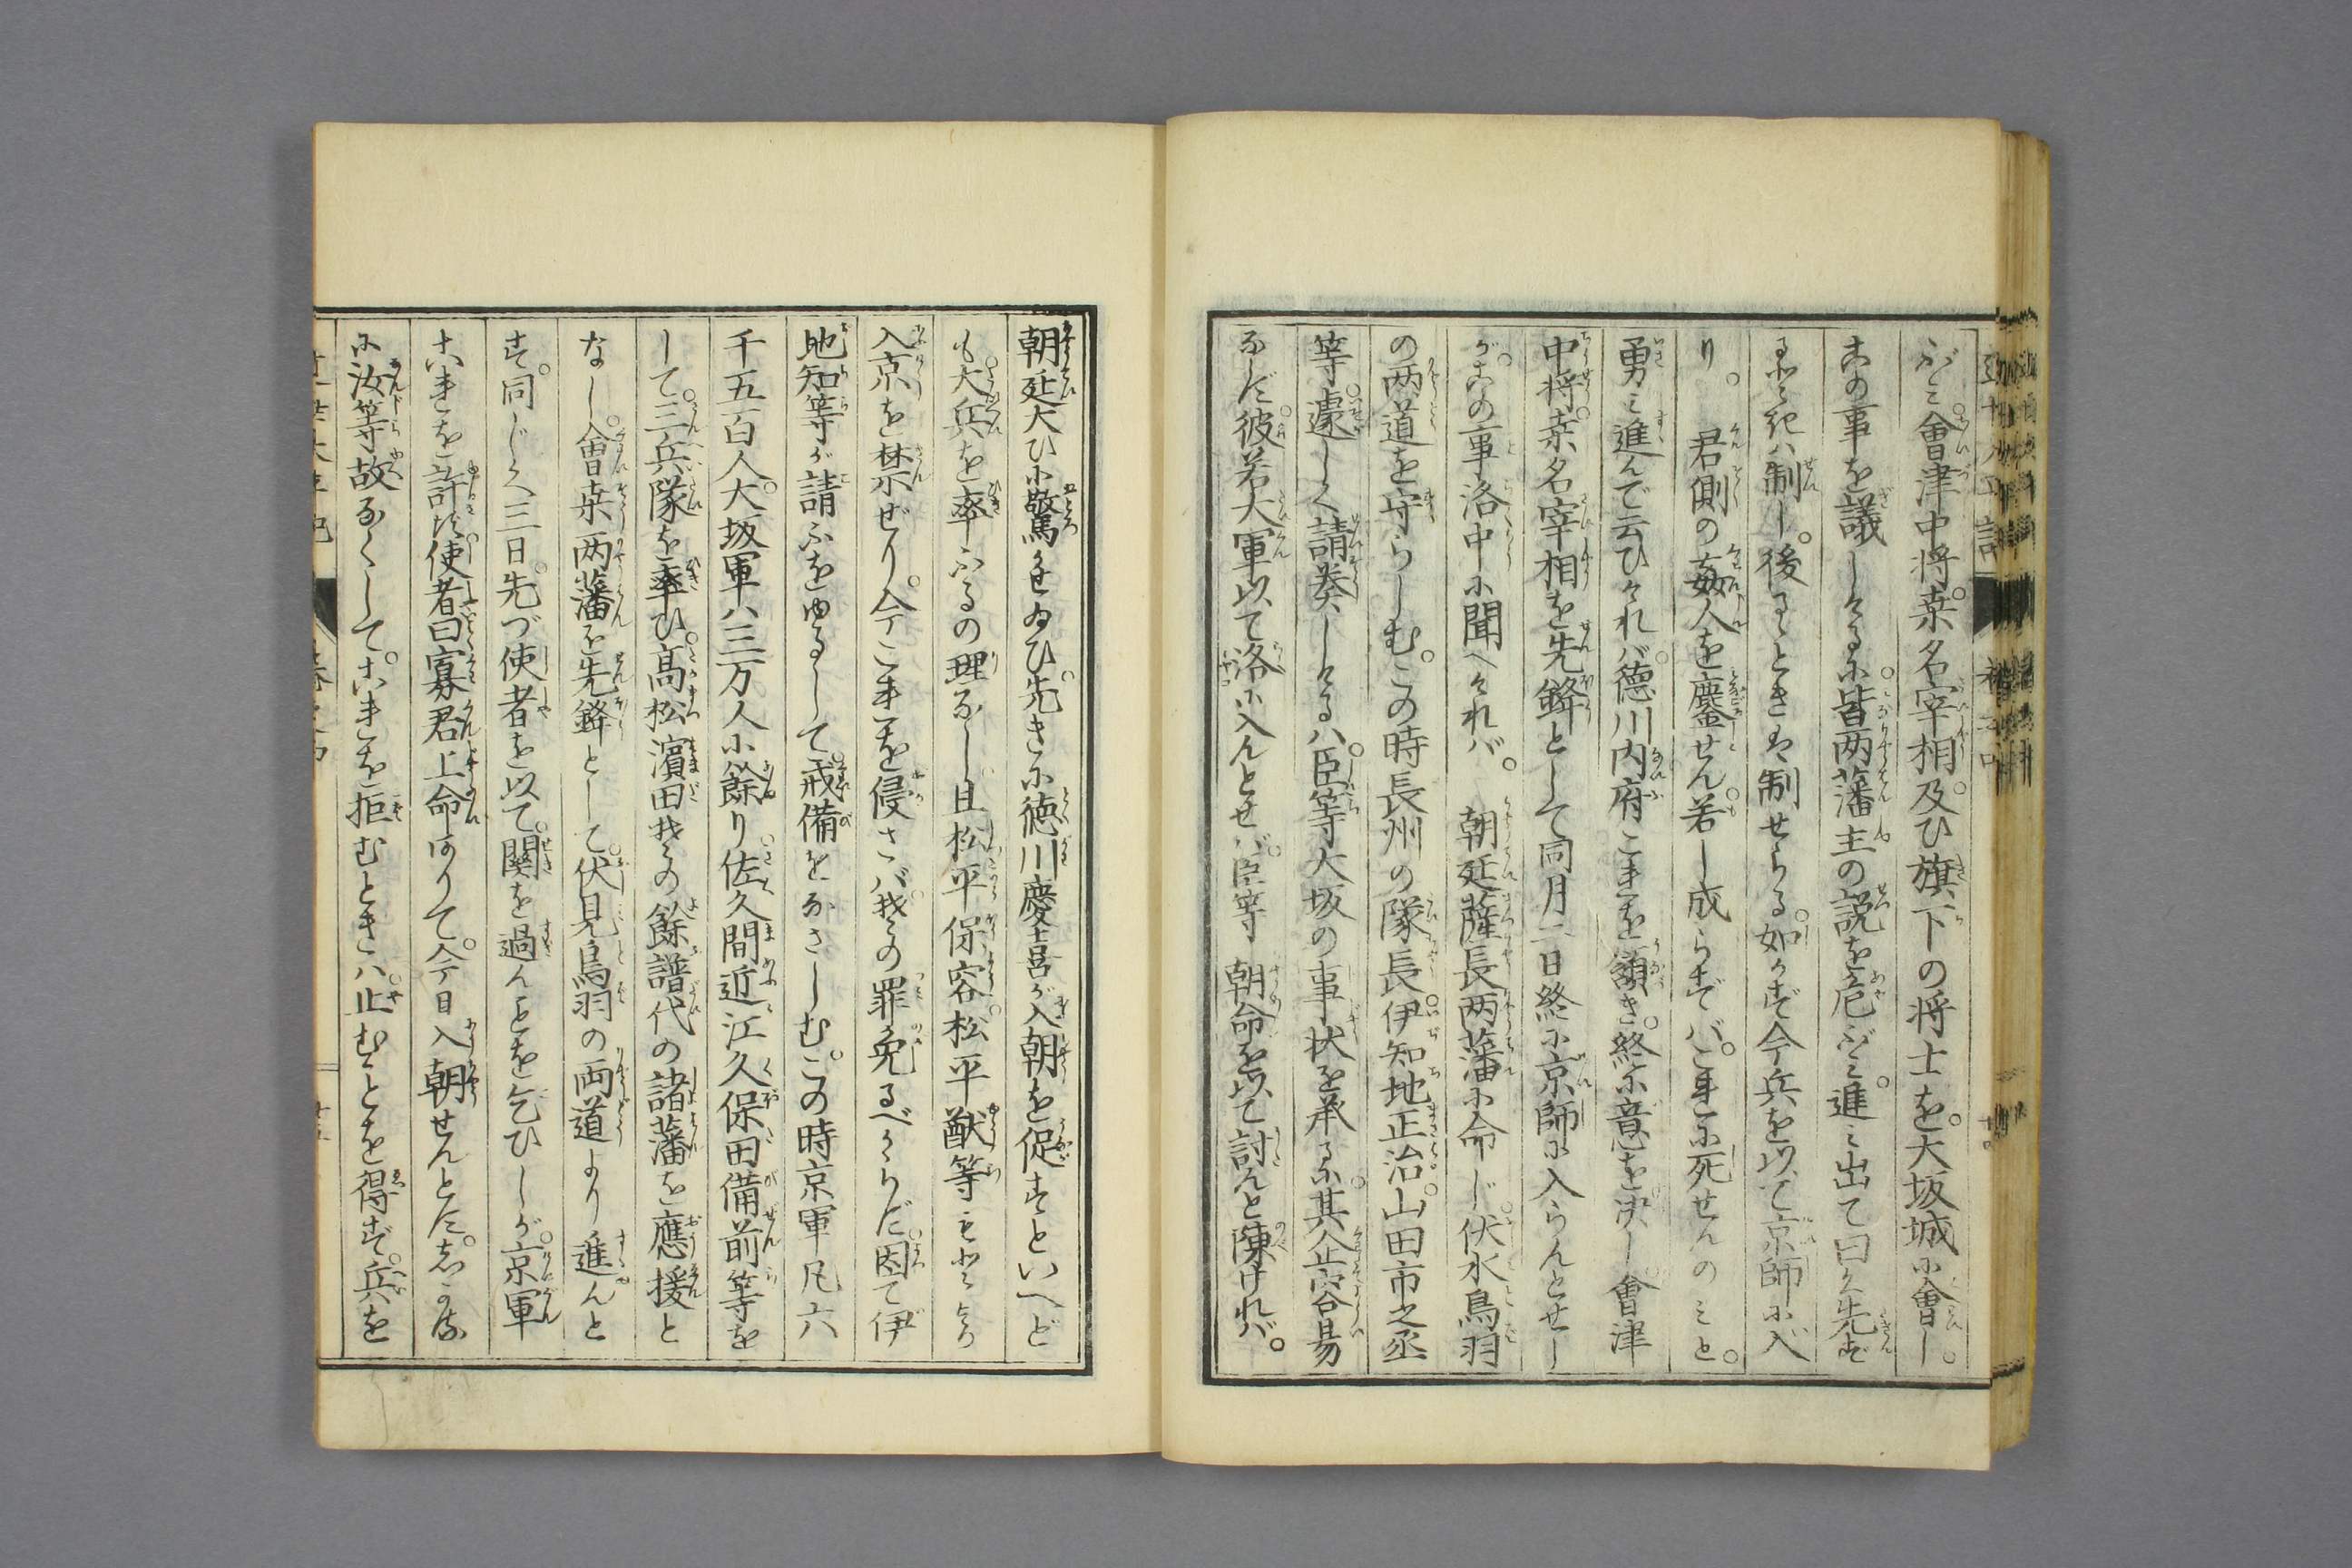 び会津中将。桒名宰相。及ひ旗下の将士を。大坂城に會し。
この事を議しけるに。皆両藩主の説を危ぶミ。進ミ出て曰く先ず
るときハ制し。後るゝときハ制せらる。如かず今兵を以て京師に入
り。君側の姦人を鏖せん。若し成らずバ。これに死せんのミと。
勇ミ進んで云ひければ。徳川内府これを頷き。終に意を決し會津
中将。桒名宰相を先鋒として同月二日終に京師に入らんとせし
が。この事洛中に聞へければ。朝廷薩長両藩に命じ。伏水鳥羽
の両道を守らしむ。この時長州の隊長。伊知地正治。山田市之丞
等。遽しく請奏しけるハ。臣等大坂の事状を承るに。其企容易
ならだ。彼若大軍以て洛に入んとせバ。臣等朝命を以て討んと陳ければ。
朝廷大ひに驚かせ為ひ。先きに徳川慶喜が入朝を促すといへど
も。大兵を率ふるの理なし。且松平保容。松平猷等も
入京を禁ぜり。今これを侵さバ。我の罪免るべからだ。因て伊
地知等が請ふをゆるして。戒備をなさしむ。この時京軍凡六
千五百人。大坂軍ハ三万人に餘り。佐久間近江久保田備前等を
して。三兵隊を率ひ。高松濱田我の餘譜代の諸藩を應援と
なし。會桒両藩を先鋒として。伏見鳥羽の両道より進んと
す。同じく三日。先づ使者を以て。関を過んことを乞ひしが。京軍
これを許さず。使者曰寡君上命ありて。今日入朝せんとす。
に汝等故なくして。これを拒むときハ。止むことを得ず。兵を